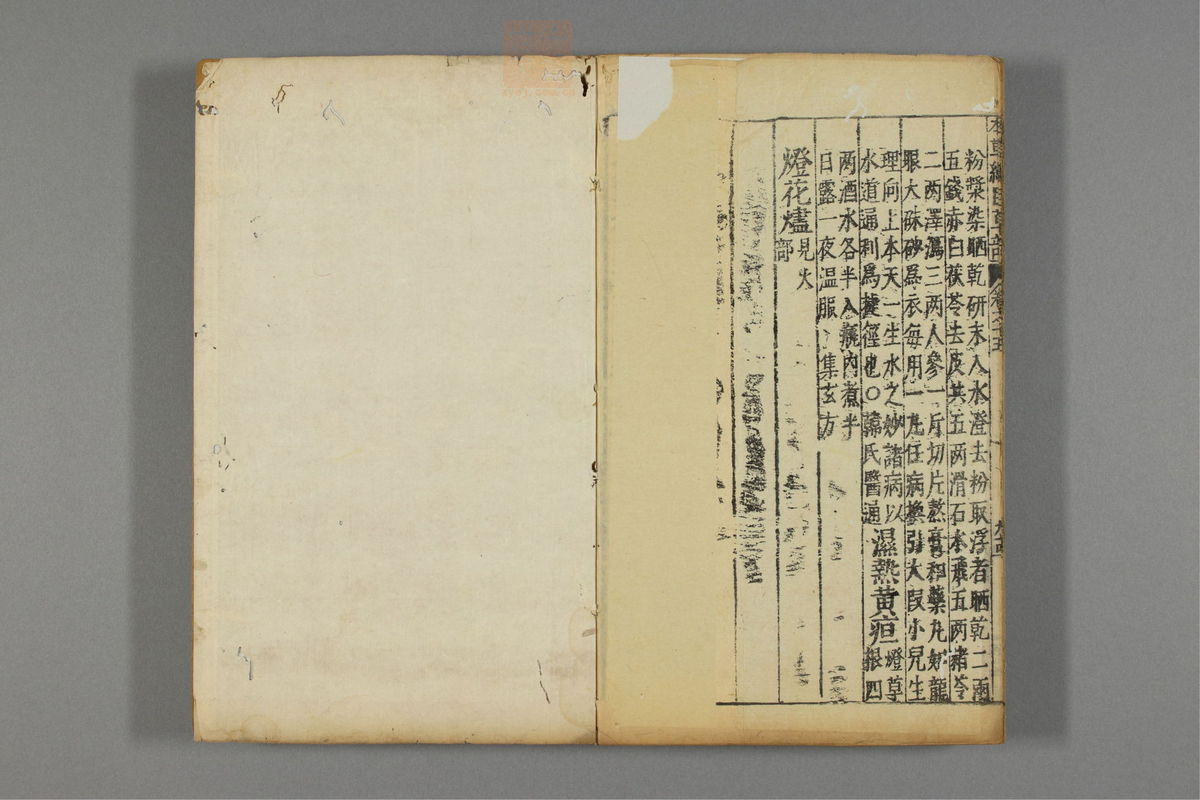 本草綱目草部 卷之十五 九十四
粉漿染晒乾研末入水澄去粉取浮者晒乾二兩
五錢赤白茯苓去皮共五两滑石水飛五两猪苓
二两澤瀉三两人參一斤切片熬膏和藥丸如龍
眼大硃砂爲衣每用一丸任病換引大叚小兒生
理向上本天一生水之妙諸病以
水道通利爲捷徑也○韓氏醫通
濕熱黄疸
燈草
根四
两酒水各半入瓶内煮半
日露一夜温服集玄方
燈花燼
見火
部